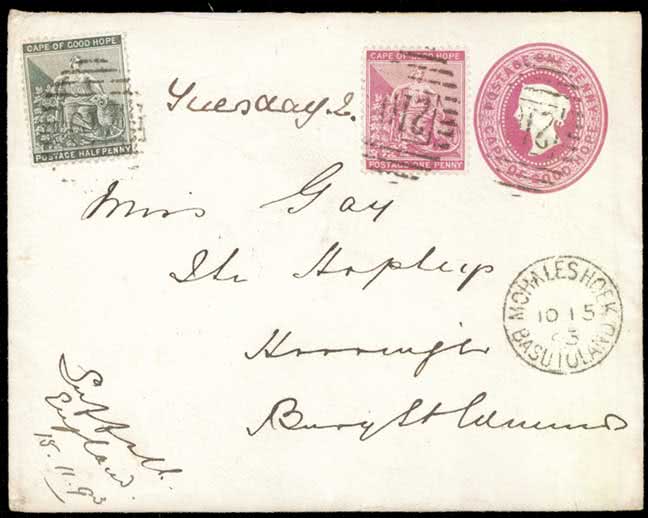 CAPE OF GOOD HOPE
POSTAGE HALF PENNY
CAPE OF GOOD HOPE
POSTAGE ONE PENNY
POSTAGE ONE PENNY
CAPE OF GOOD HOPE
Tuesday
Miss Gay
Horringer
Bury St Edmunds
MOHALES HOEK
10 15
BASUTOLAND
Suffolk.
England.